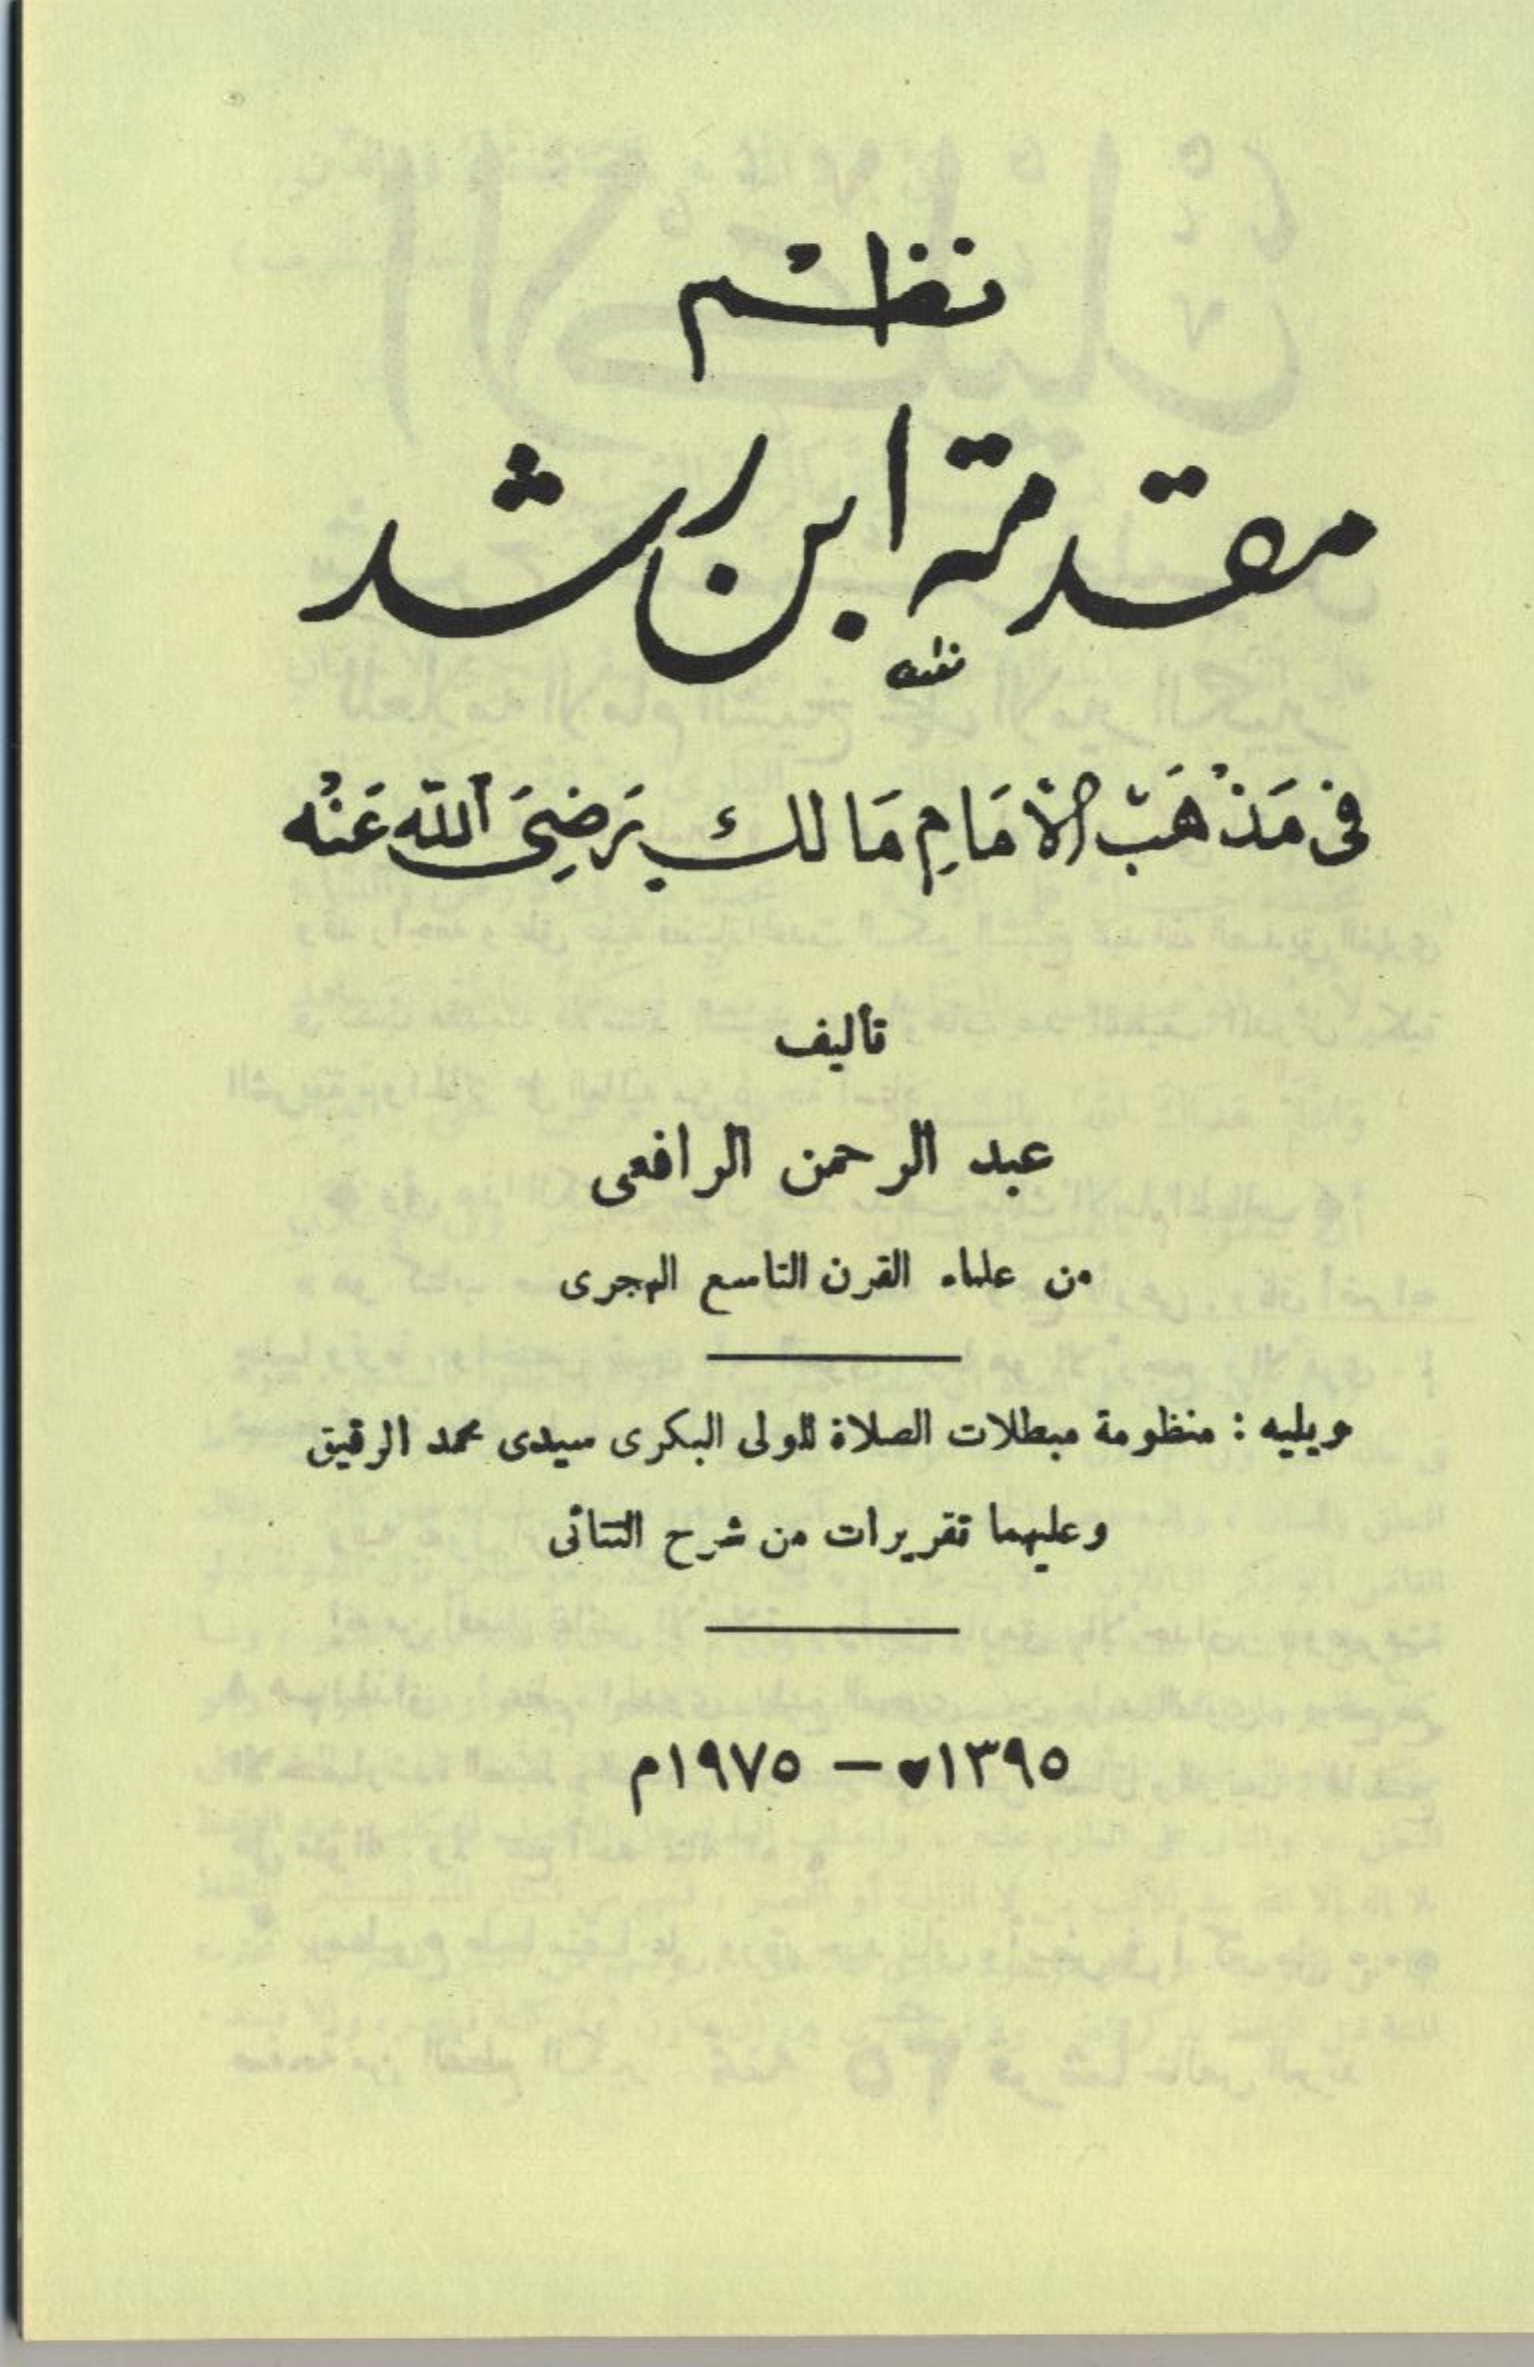 نظم
مقدمة ابن رشد
فى مَذْهَبِ الأمَامِ مَالكِ رَضِىَ اللّه عَنْه
تأليف
عبد الرحمن الرافعى
من علماء القرن التاسع الهجرى
ويليه : منظومة مبطلات الصلاة للولى البكرى سيدى محمد الرقيق
وعليهما تقريرات من شرح التتائى
١٣٩٥ه – ١٩٧٥م